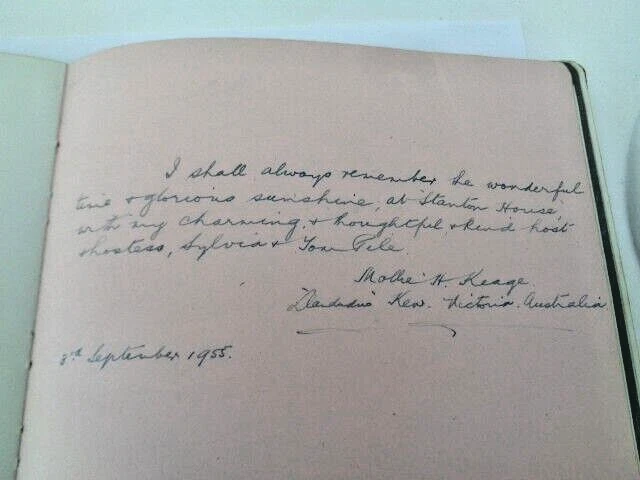 I shall always remember the wonderful
time & glorious sunshine, at Stanton House,
with my charming, & thoughtful & kind host
& hostess, Sylvia & Tom Pele.
Mollie H. Keage
Kew. Victoria. Australia
3rd September 1955.